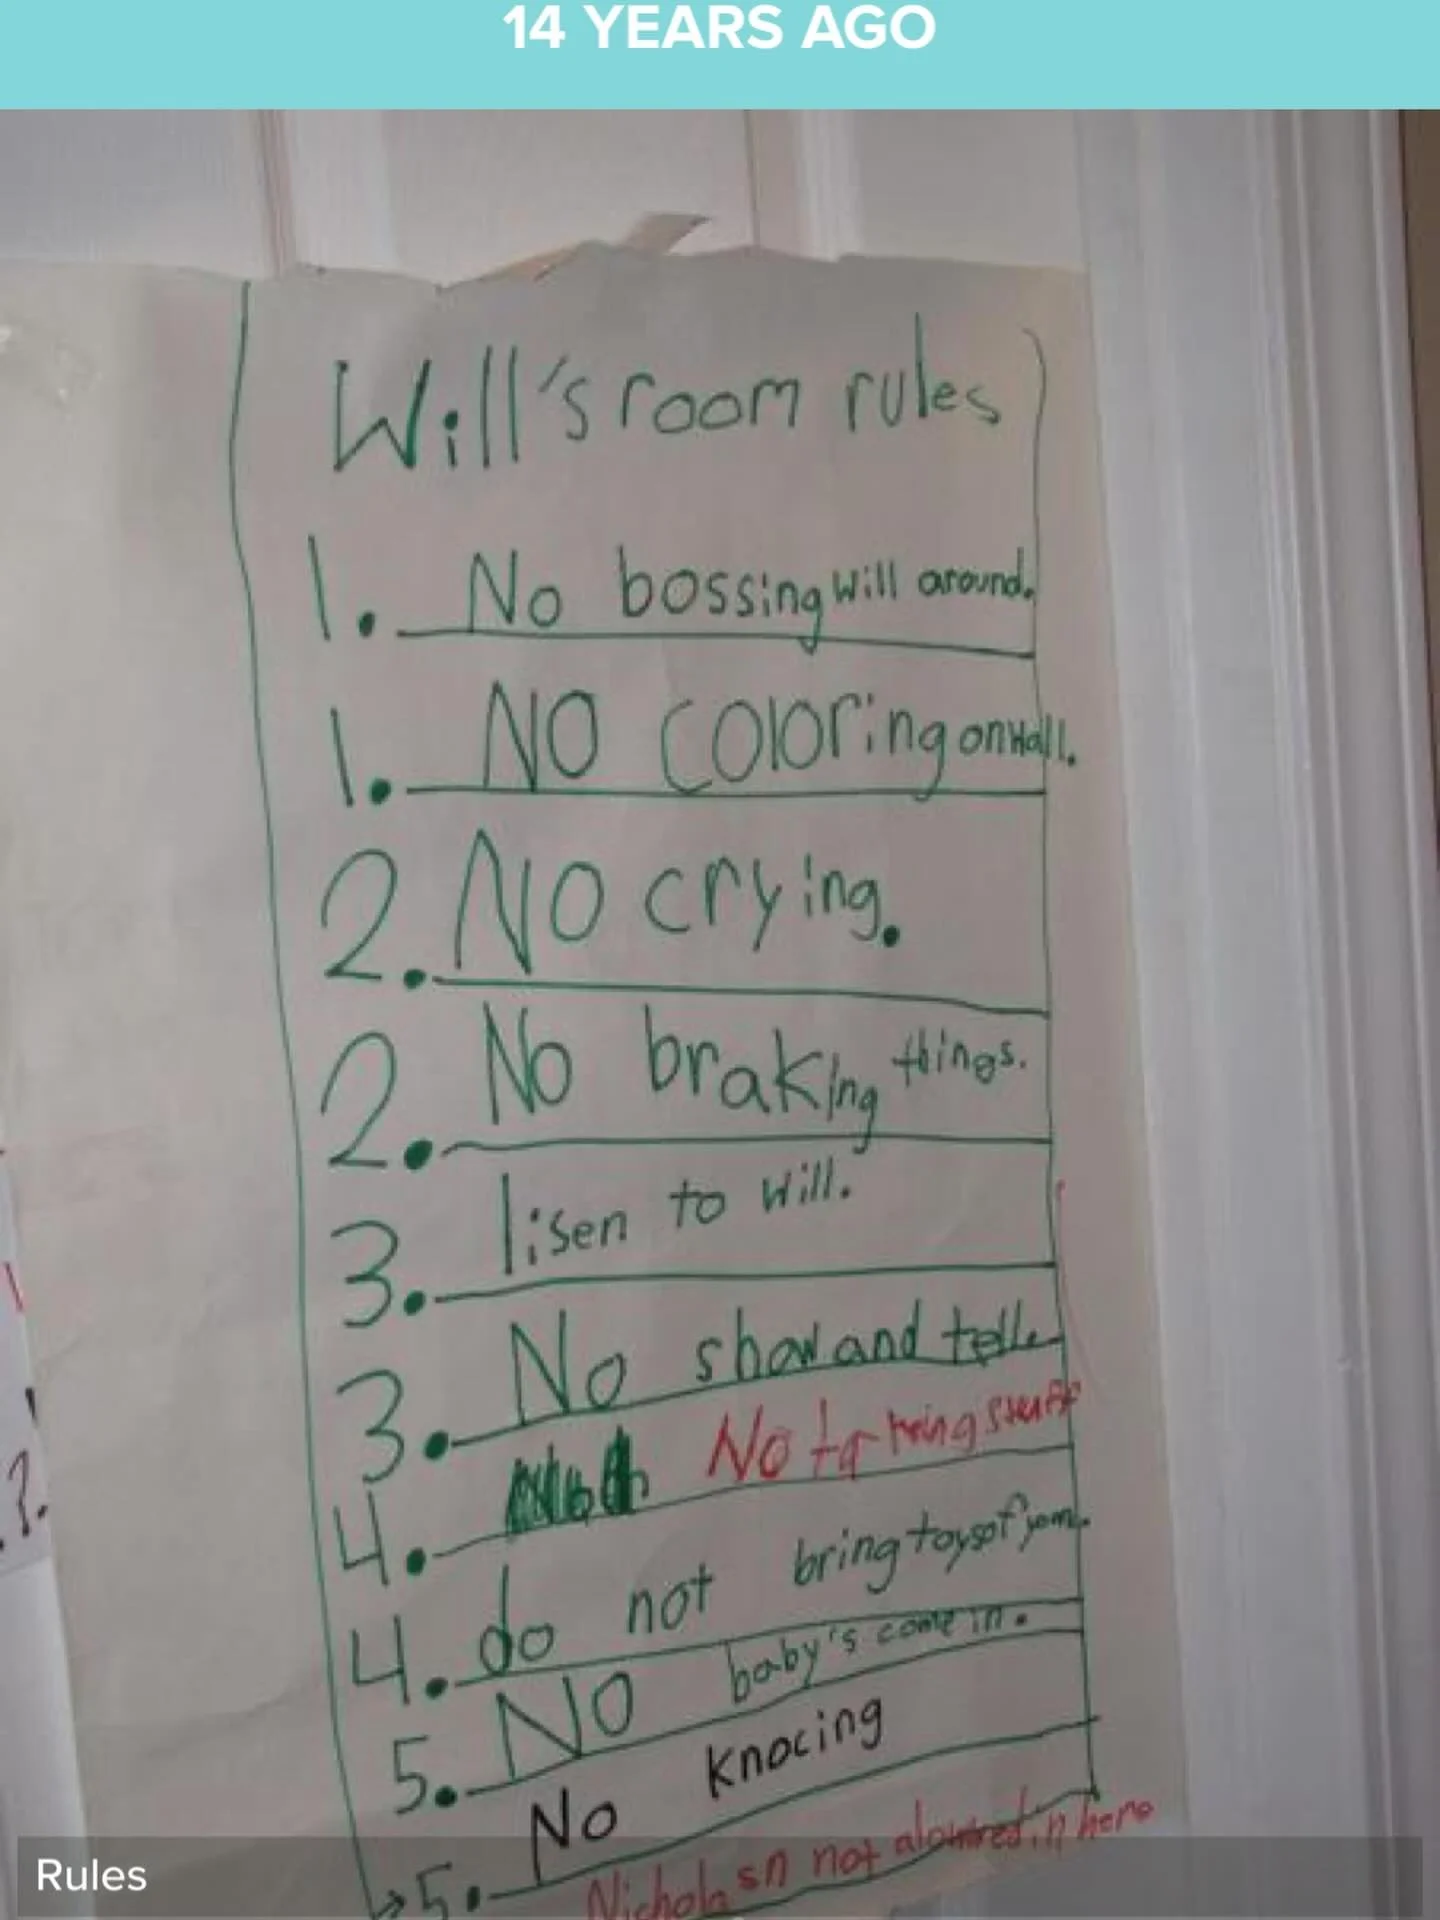 14 YEARS AGO
Will's room rules
1. No bossing will around.
1. NO coloring on wall.
2. NO crying.
2. No braking things.
3. lisen to will.
3. No show and tell
4. No bring stuff
4. do not bring toys of
5. NO baby's come in.
5. No knocing
not alowred in here
Rules